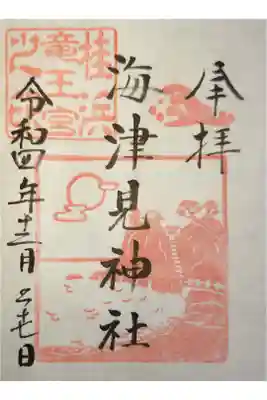 奉拝
海津見神社
桂浜
竜王宮
令和四年十二月二十七日